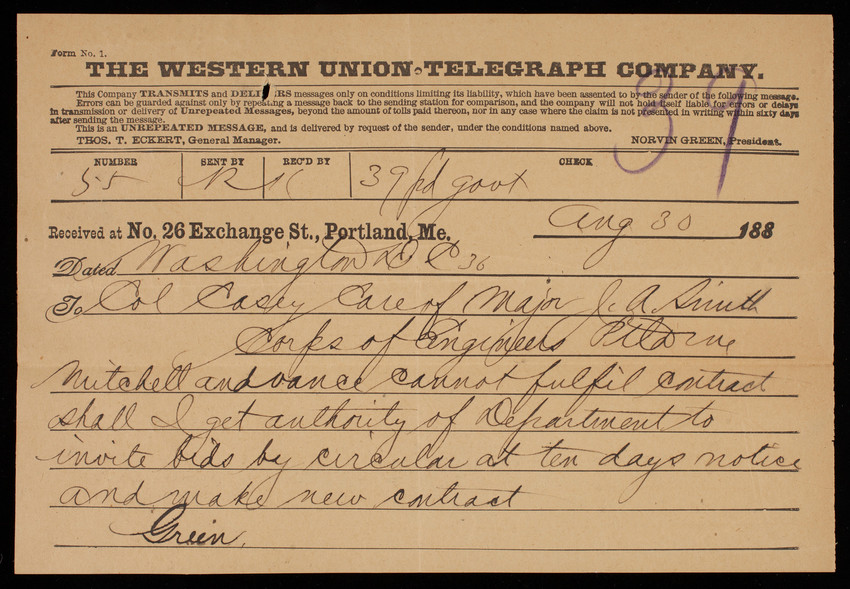 Form No. 1.
THE WESTERN UNION TELEGRAPH COMPANY.
37
This Company TRANSMITS and DELIVERS messages only on conditions limiting its liability, which have been assented to by the sender of the following message.
Errors can be guarded against only by repeating a message back to the sending station for comparison, and the company will not hold itself liable for errors or delays
in transmission or delivery of Unrepeated Messages, beyond the amount of tolls paid thereon, nor in any case where the claim is not presented in writing within sixty days
after sending the message.
This is an UNREPEATED MESSAGE, and is delivered by request of the sender, under the conditions named above.
THOS. T. ECKERT, General Manager. NORVIN GREEN, President.
NUMBER SENT BY REC'D BY CHECK
55 39 pd govt
Received at No. 26 Exchange St., Portland, Me. Aug 30 188
Dated Washington D C 36
To Col Casey Care of Major J. A. Smith
Corps of Engineers Ptld me
Mitchell and vance cannot fulfil contract
shall I get authority of Department to
invite bids by circular at ten days notice
and make new contract
Green.